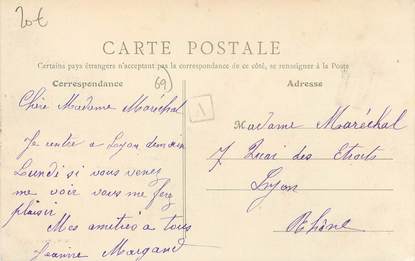 20€
CARTE POSTALE
Certains pays étrangers n'acceptant pas la correspondance de ce côté, se renseigner à la Poste
Correspondance
69
Adresse
A
Chère Madame Maréchal
Je rentre a Lyon demain
Lundi si vous venez
me voir vous me ferz
plaisir
Mes amitiés a tous
Jeanne Morgand
Madame Maréchal
7 Quai des Etroits
Lyon
Rhône